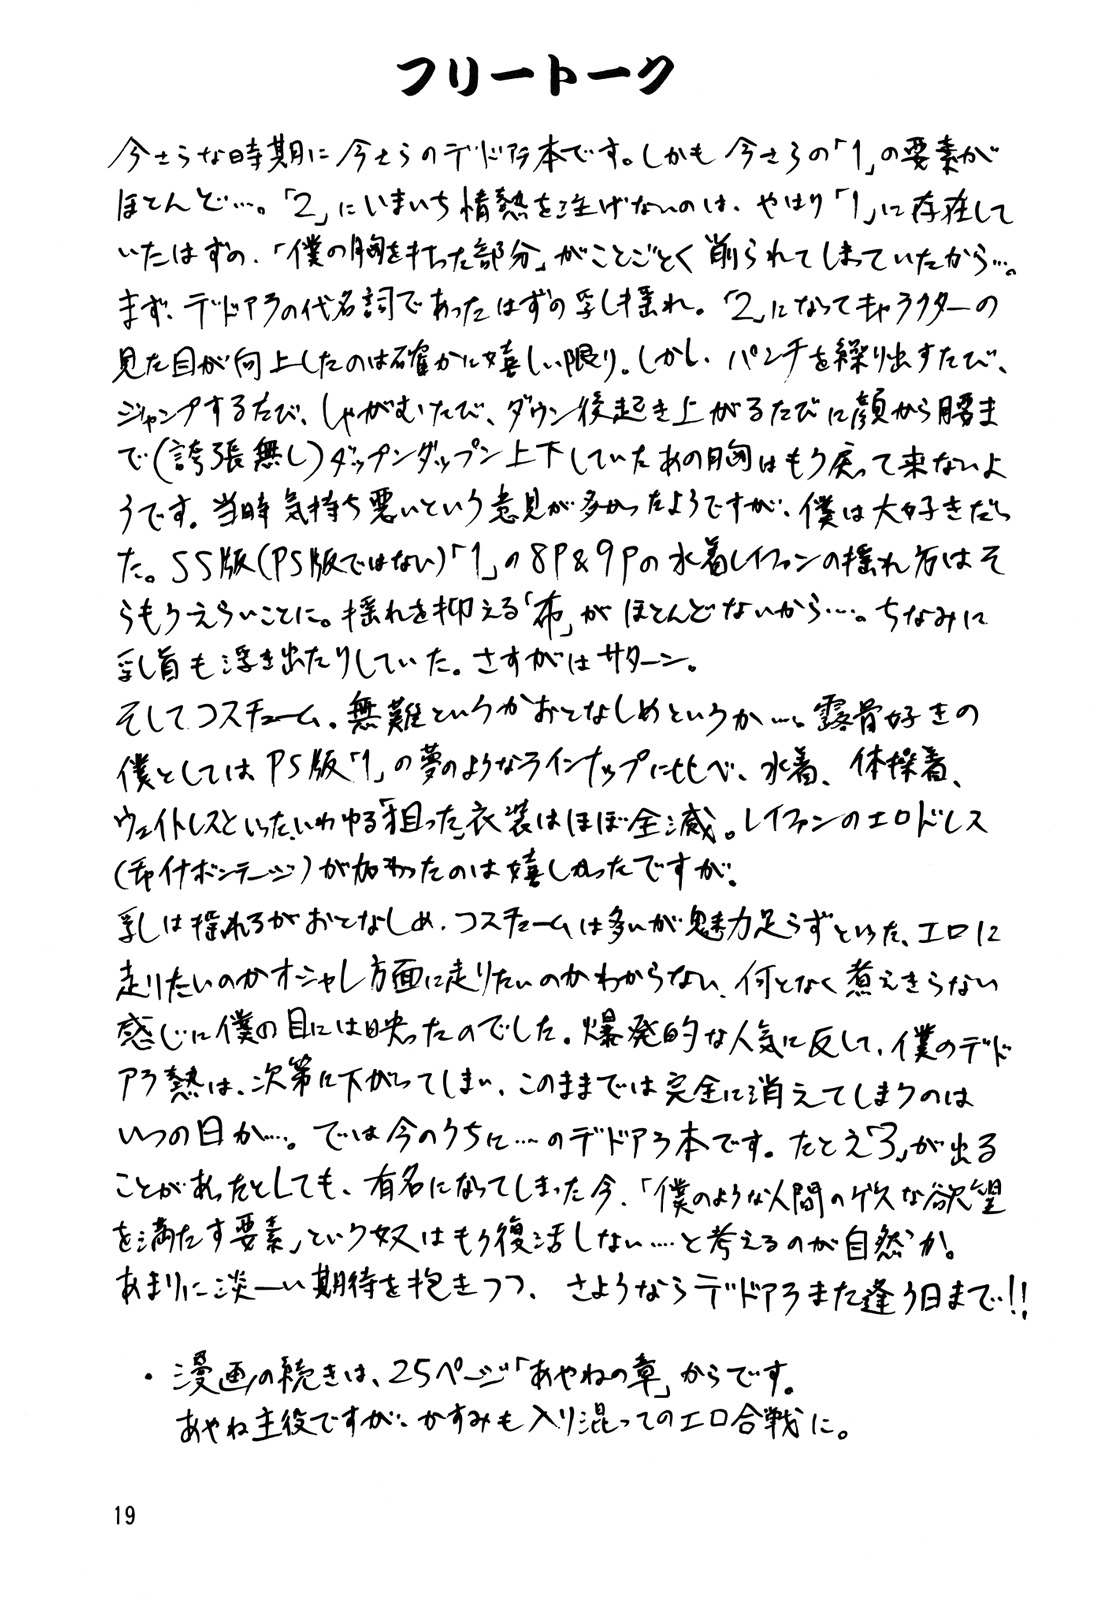 フリートーク
今さらな時期に今さらのデドアラ本です。しかも今さらの「1」の要素が
ほとんど…。「2」にいまいち情熱を注げないのは、やはり「1」に存在して
いたはずの、「僕の胸を打った部分」がことごとく削られてしまっていたから…。
まず、デドアラの代名詞であったはずの乳揺れ。「2」になってキャラクターの
見た目が向上したのは確かに嬉しい限り。しかし、パンチを繰り出すたび、
ジャンプするたび、しゃがむたび、ダウン後起き上がるたびに顔から腰ま
で(誇張無し)ダップンダップン上下していたあの胸はもう戻って来ないよ
うです。当時気持ち悪いという意見が多かったようですが、僕は大好きだっ
た。SS版(PS版ではない)「1」の8P&9Pの水着レイファンの揺れ方はそ
らもうえらいことに。揺れを抑える「布」がほとんどないから…。ちなみに
乳首も浮き出たりしていた。さすがはサターン。
そしてコスチューム。無難というかおとなしめというか…。露骨好きの
僕としてはPS版「1」の夢のようなラインナップに比べ、水着、体操着、
ウェイトレスといった、いわゆる「狙った」衣装はほぼ全滅。レイファンのエロドレス
(チャイナボンテージ)が加わったのは嬉しかったですが。
乳は揺れるがおとなしめ、コスチュームは多いが魅力足らずといった、エロに
走りたいのかオシャレ方面に走りたいのかわからない、何となく煮えきらない
感じに僕の目には映ったのでした。爆発的な人気に反して、僕のデド
アラ熱は、次第に下がってしまい、このままでは完全に消えてしまうのは
いつの日か…。では今のうちに…のデドアラ本です。たとえ「3」が出る
ことがあったとしても、有名になってしまった今、「僕のような人間のゲスな欲望
を満たす要素」という奴はもう復活しない…と考えるのが自然か。
あまりに淡〜い期待を抱きつつ、さようならデドアラまた逢う日まで!!
・漫画の続きは、25ページ「あやねの章」からです。
あやね主役ですが、かすみも入り混ってのエロ合戦に。
19